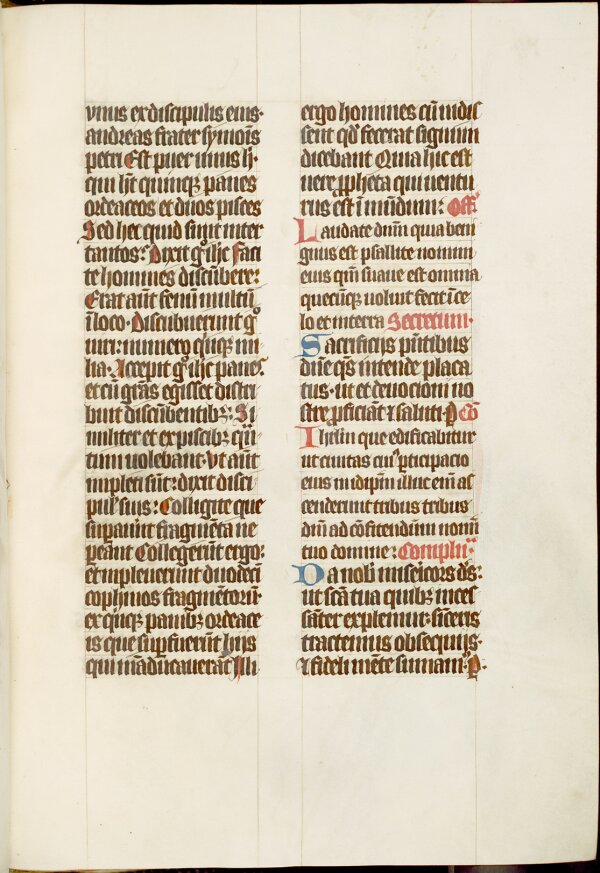 vnus ex discipulis eius·
andreas frater symōis
petri Est puer unus h̄·
qui hȝ quinqȝ panes
ordeaceos et duos pisces
Sed hec quid sunt inter
tantos: Dixit gͦ ihc Faci
te homines discūbere:
Erat aūt fenū multū
ī loco· Discubuerunt gͦ
uiri: numero quīqȝ mi
lia· Accepit gͦ ihc panes·
et cū grās egisset distri
buit discūbentibȝ: Si
militer et ex piscibȝ qͣn
tum uolebant· Vt aūt
impleti sūt: dixit disci
pul' suis: Colligite que
supauint fragmēta ne
peant Collegerūt ergo:
et impleuerunt duodecī
cophinos fragmētorū·
ex quīqȝ panibȝ ordeace
is que supfuerūt hijs
qui māducauerāt Illi
ergo homines cū uidis
sent qd fecerat signum
dicebant Quia hic est
uere ꝓpheta qui uentu
rus est ī mundum: Off'
Laudate dūm quia beni
gnus est psallite nomini
eius qm̄ suaue est omnia
quecūqȝ uoluit fecit ī ce
lo et in terra Secretum·
Sacrificijs pn̄tibus
dūe qs intende placa
tus· ut et deuocioni no
stre ꝓficiāt ⁊ saluti· P Cō
Ihrlm̄ que edificabitur
ut ciuitas cui' ꝑticipacio
eius in idipm̄ illuc eni as
cenderunt tribus tribus
dn̄i ad cōfitendum nomī
tuo domine: Complīi
Da nob' misericors ds:
ut scā tua quibȝ inces
sāter explemur: sinceris
tractemus obsequijs·
⁊ fideli mēte sumam' P·